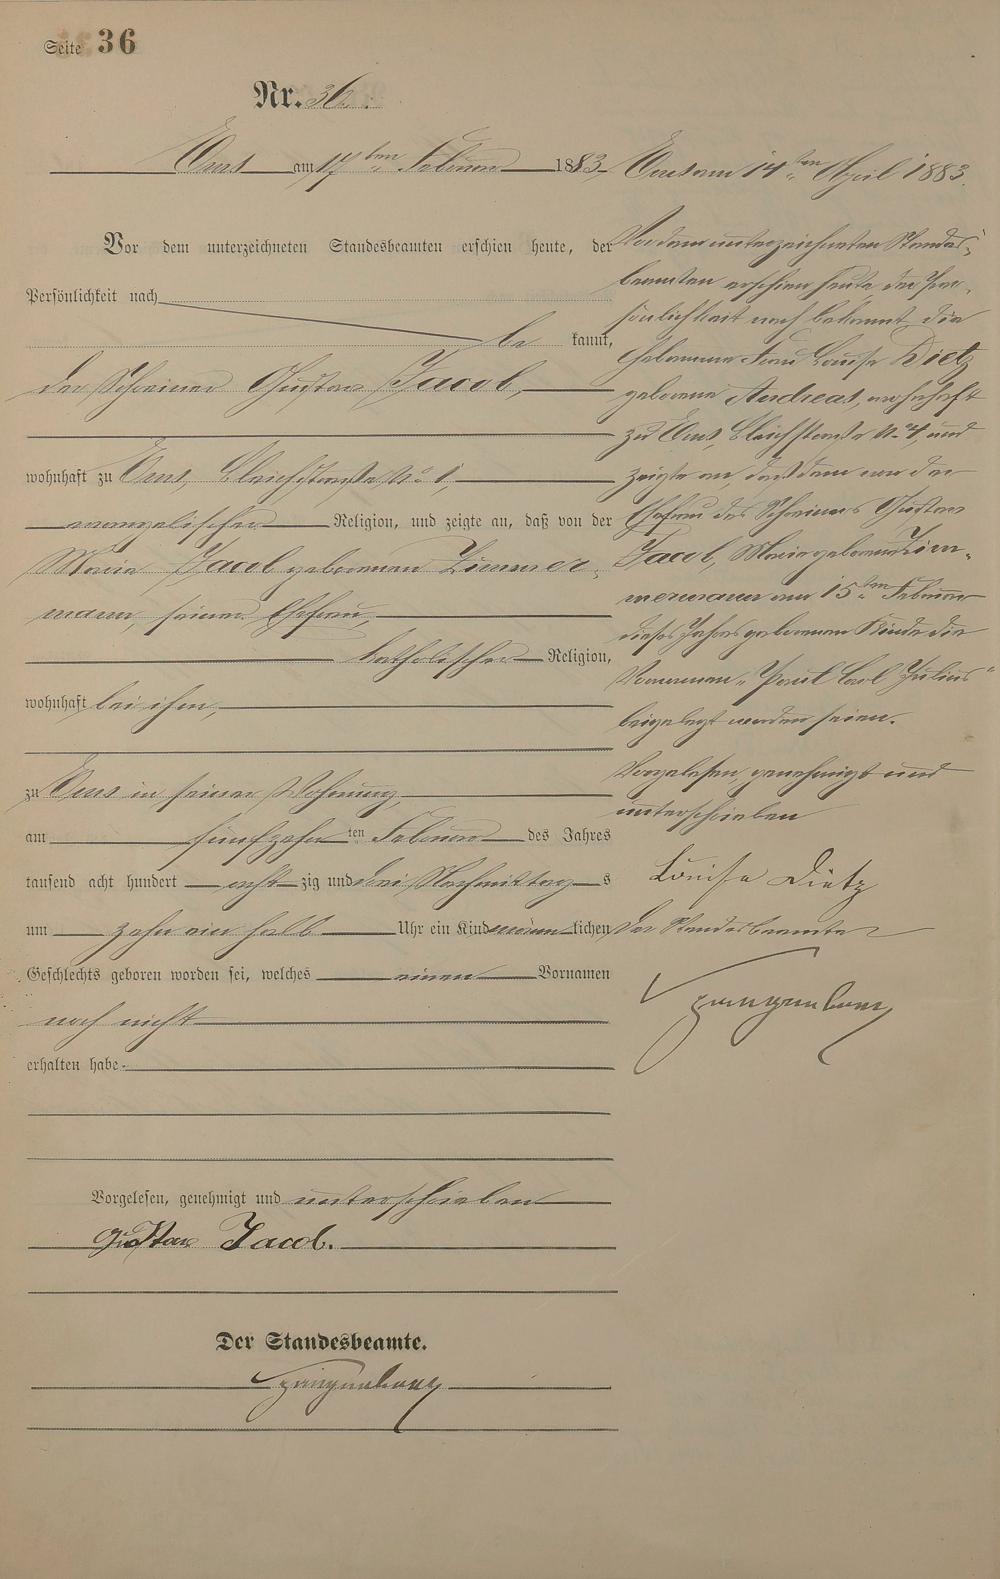 Seite 36
Nr. 36.
Ems am 17ten Februar 1883
Vor dem unterzeichneten Standesbeamten erschien heute, der
Persönlichkeit nach
be kannt,
der Schreiner Gustav Jacob,
wohnhaft zu Ems, Bleichstraße No 1,
evangelischer Religion, und zeigte an, daß von der
Marie Jacob geborenen Zimmer-
mann, seiner Ehefrau
katholischer Religion,
wohnhaft bei ihm,
zu Ems in seiner Wohnung,
am fünfzehn ten Februar des Jahres
tausend acht hundert acht zig und drei Nachmittag s
um zehn ein halb Uhr ein Kind männ lichen
Geschlechts geboren worden sei, welches einen Vornamen
noch nicht
erhalten habe.
Vorgelesen, genehmigt und unterschrieben
Gustav Jacob.
Der Standesbeamte.
Ems am 14ten April 1883.
Vor dem unterzeichneten Standes-
beamten erschien heute, der Per-
sönlichkeit nach bekannt, die
Hebamme Frau Louise Dietz
geborene Andreas, wohnhaft
zu Ems, Bleichstraße No 4, und
zeigte an, daß dem von der
Ehefrau des Schreiners Gustav
Jacob, Marie geborenen Zim-
mermann am 15ten Februar
dieses Jahres geborenen Kinde die
Vornamen „Paul Carl Julius“
beigelegt worden seien.
Vorgelesen, genehmigt und
unterschrieben
Louise Dietz
Der Standesbeamte